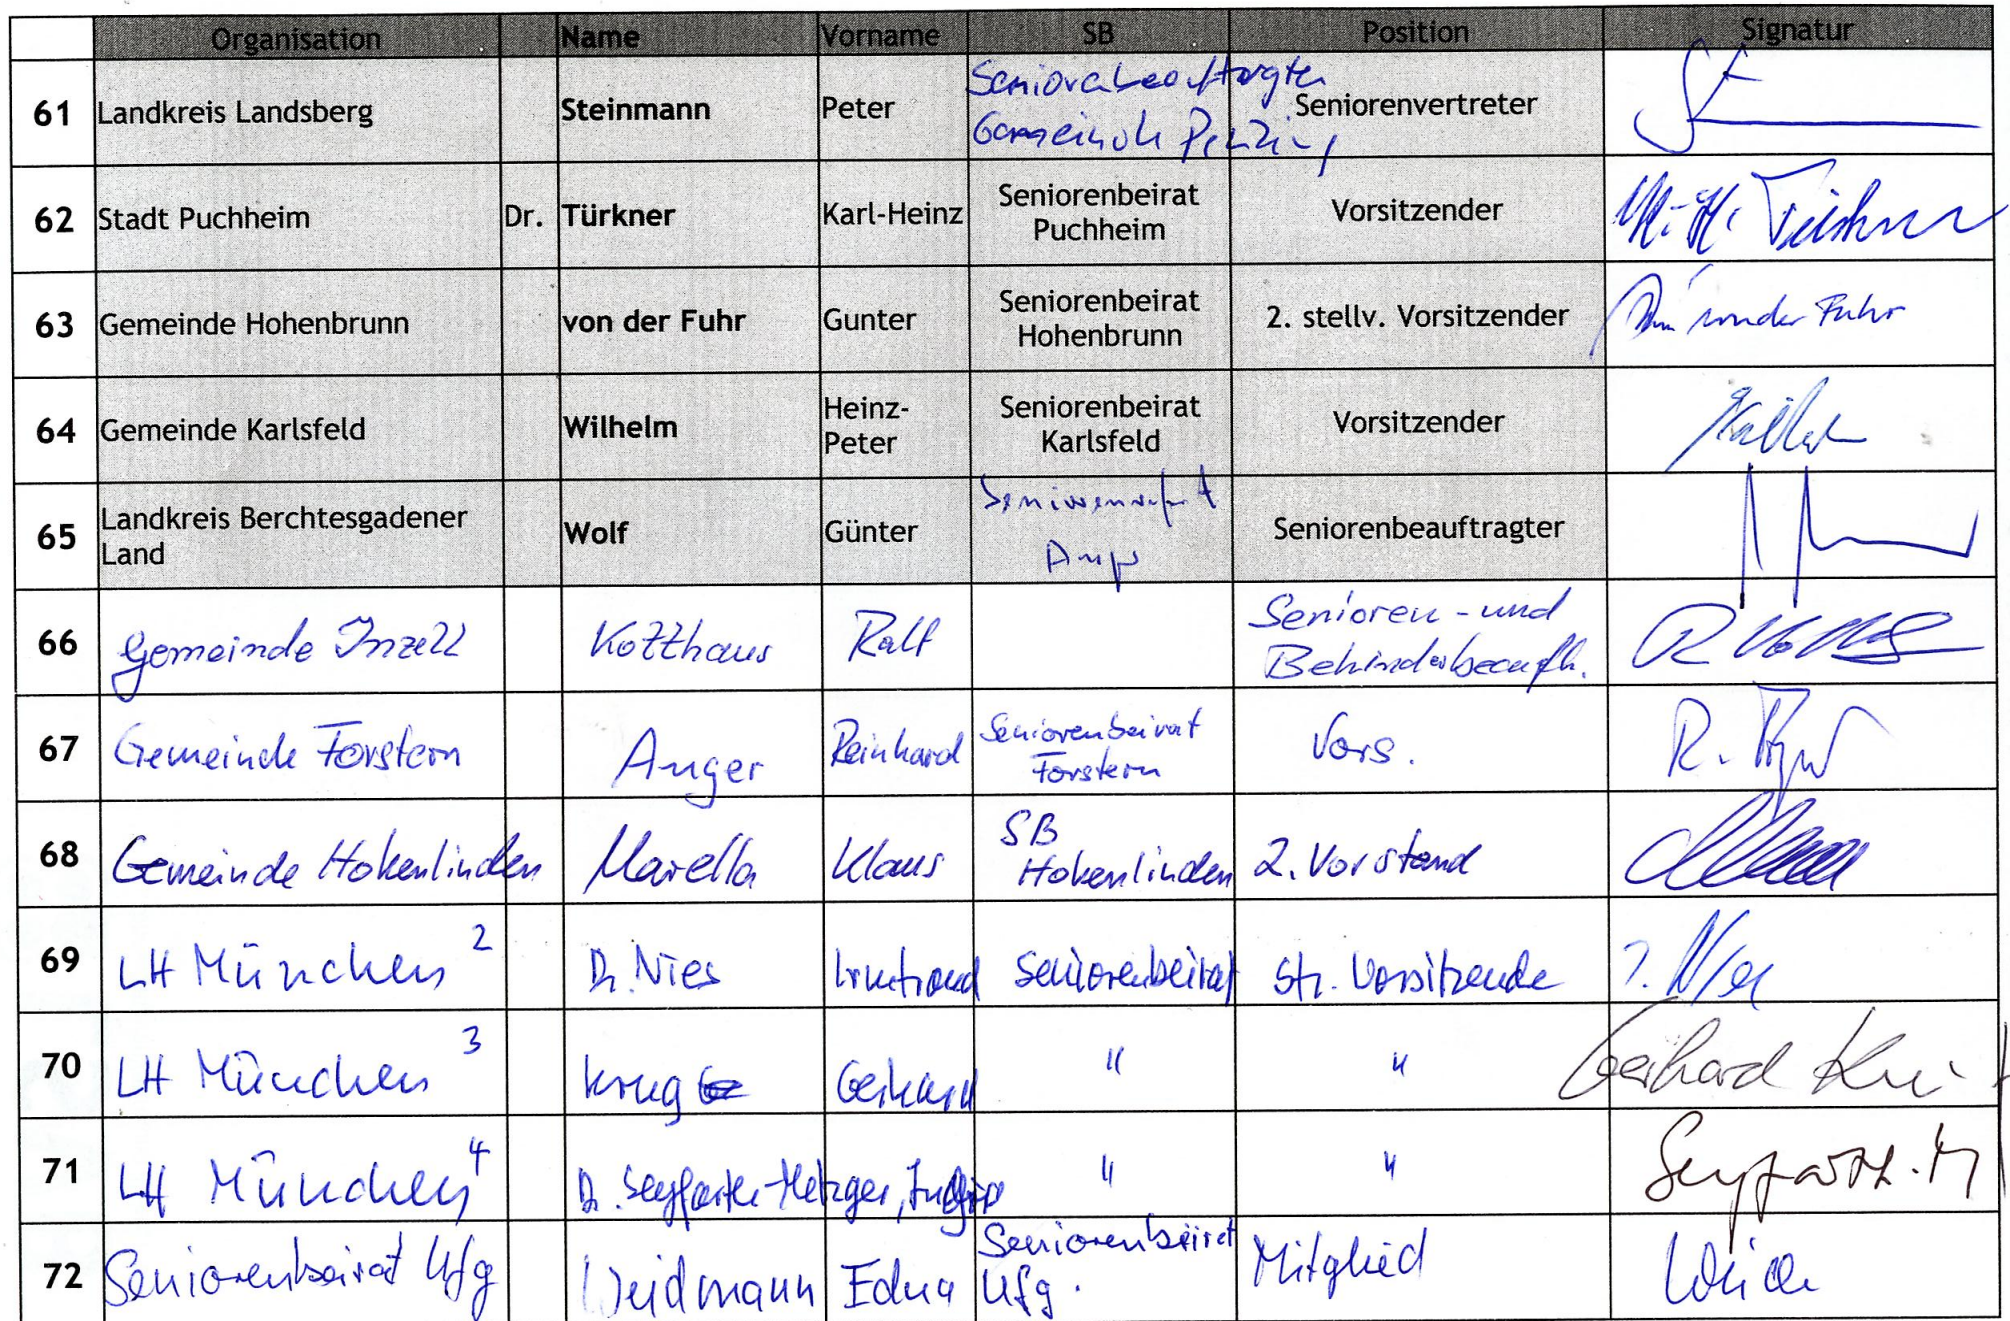 Organisation Name Vorname SB Position Signatur
61 Landkreis Landsberg Steinmann Peter Seniorenbeauftragter Gemeinde Penzing Seniorenvertreter
62 Stadt Puchheim Dr. Türkner Karl-Heinz Seniorenbeirat Puchheim Vorsitzender
63 Gemeinde Hohenbrunn von der Fuhr Gunter Seniorenbeirat Hohenbrunn 2. stellv. Vorsitzender von der Fuhr
64 Gemeinde Karlsfeld Wilhelm Heinz-Peter Seniorenbeirat Karlsfeld Vorsitzender
65 Landkreis Berchtesgadener Land Wolf Günter Seniorenbeauftragter
66 Gemeinde Inzell Kotthaus Ralf Senioren-und Behindertenbeauftr.
67 Gemeinde Forstern Anger Reinhard Seniorenbeirat Forstern Vors.
68 Gemeinde Hohenlinden Marella Klaus SB Hohenlinden 2. Vorstand
69 LH München 2 Dr. Nies Irmtraud Seniorenbeirat Stv. Vorsitzende
70 LH München 3 Krug Gerhard " " Gerhard
71 LH München 4 Dr. Seyfarth-Metzger, Ingrid " "
72 Seniorenbeirat Ufg Weidmann Edna Seniorenbeirat Ufg. Mitglied